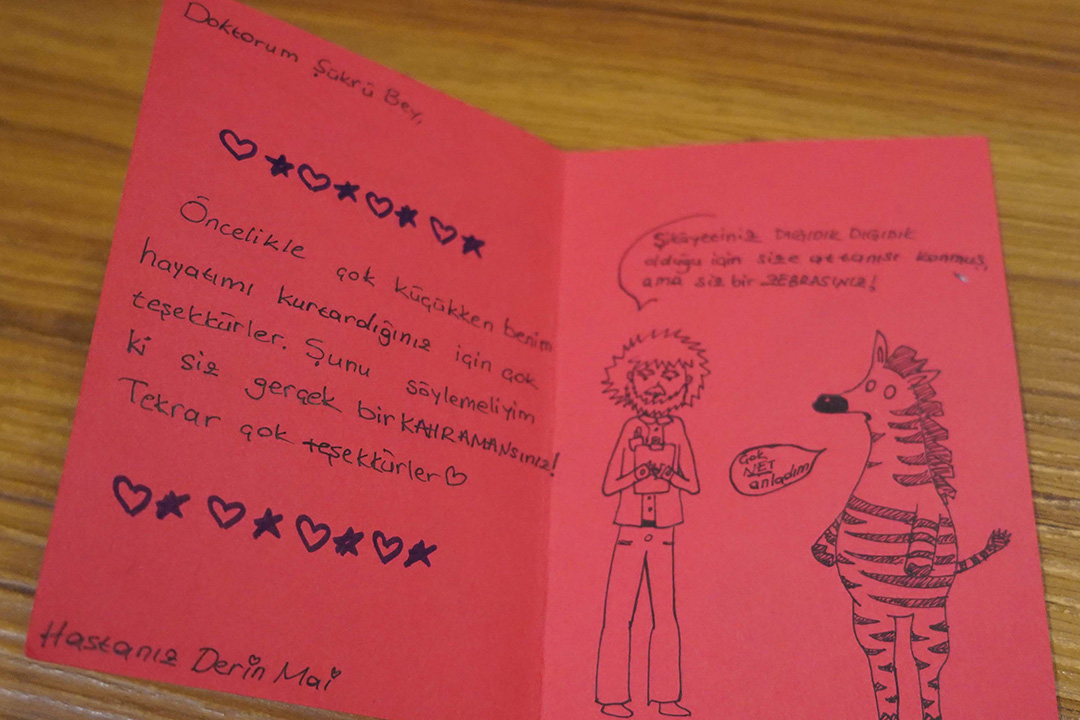 Doktorum Şükrü Bey,
Öncelikle çok küçükken benim
hayatımı kurtardığınız için çok
teşekkürler. Şunu söylemeliyim
ki siz gerçek bir KAHRAMANSınız!
Tekrar çok teşekkürler
Hastanız Derin Mai
Şikayetiniz DIGIDIK DIGIDIK
olduğu için size at tanısı konmuş,
ama siz bir ZEBRASINIZ!
Çok
NET
anladım